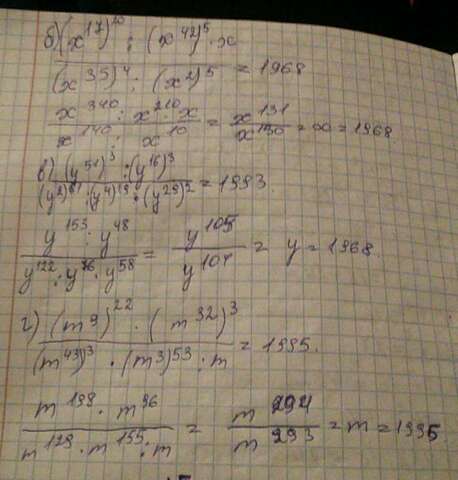 б) (x¹⁷)²⁰ : (x⁴²)⁵ · x
(x³⁵)⁴ : (x²)⁵ = 1968
x³⁴⁰ : x²¹⁰ · x / x¹⁴⁰ : x¹⁰ = x¹³¹ / x¹³⁰ = x = 1968.
в) (y⁵¹)³ : (y¹⁶)³
: (y⁴)¹⁹ · (y²⁹)² = 1993.
y¹⁵³ : y⁴⁸ / y¹²² : y⁷⁶ · y⁵⁸ = y¹⁰⁵ / y¹⁰⁴ = y = 1968.
г) (m⁹)²² · (m³²)³
(m⁴³)³ · (m³)⁵³ : m = 1995.
m¹⁹⁸ · m⁹⁶ / m¹²⁹ · m¹⁵⁵ : m = m²⁹⁴ / m²⁹³ = m = 1995